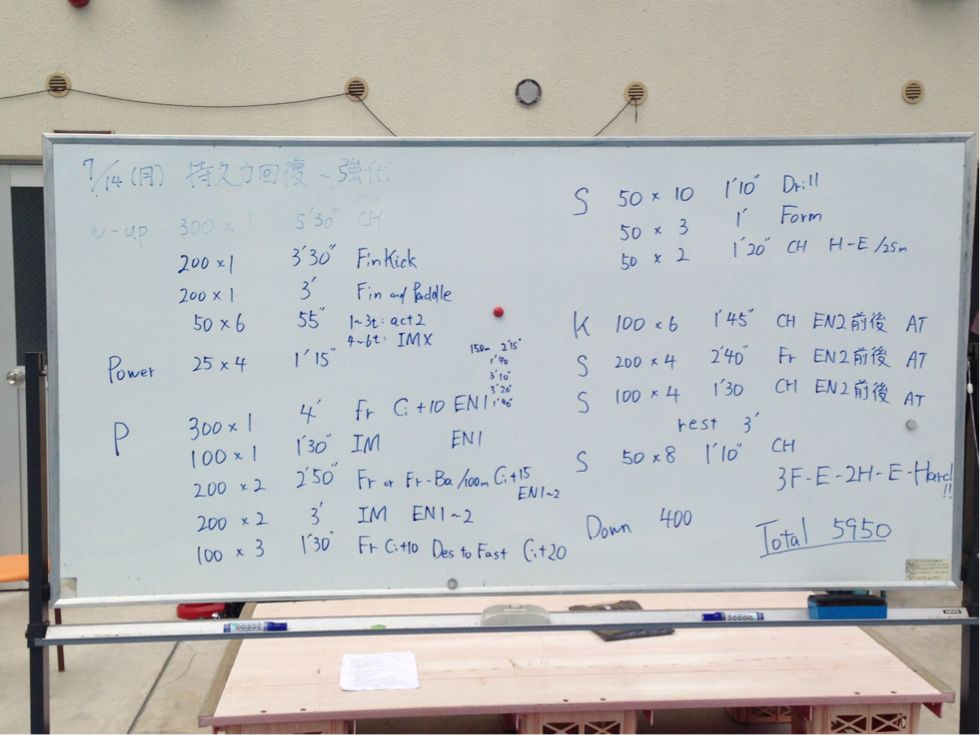 7/14 (月) 持久力回復～強化
W-up 300 × 1 5'30" CH
200 × 1 3'30" Fin Kick
200 × 1 3' Fin and Paddle
50 × 6 55" 1~3t: act2
4~6t: IMX
Power 25 × 4 1'15"
150m 2'15"
1'40
3'10"
3'20"
1'40"
P 300 × 1 4' Fr Ci+10 EN1
100 × 1 1'30" IM EN1
200 × 2 2'50" Fr or Fr-Ba/100m Ci+15
EN1~2
200 × 2 3' IM EN1~2
100 × 3 1'30" Fr Ci+10 Des to Fast Ci+20
S 50 × 10 1'10" Drill
50 × 3 1' Form
50 × 2 1'20" CH H-E/25m
K 100 × 6 1'45" CH EN2前後 AT
S 200 × 4 2'40" Fr EN2前後 AT
S 100 × 4 1'30 CH EN2前後 AT
rest 3'
S 50 × 8 1'10" CH
3F-E-2H-E-Hard!!
Down 400
Total 5950